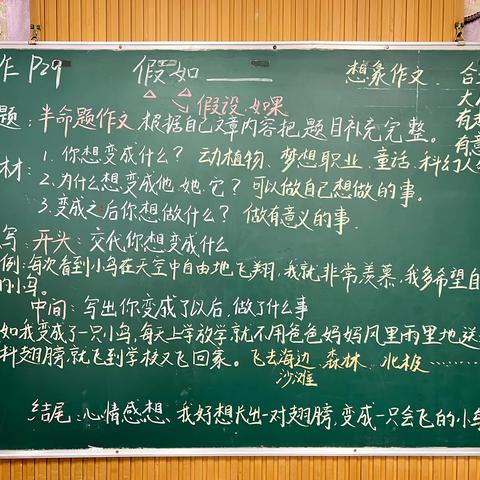 作 P29 假如____ 想象作文 合
大
题：半命题作文，根据自己文章内容把题目补充完整。
假设 如果
材：1. 你想变成什么？ 动植物、梦想职业、童话、科幻人
2. 为什么想变成他、她、它？ 可以做自己想做的事。
3. 变成之后你想做什么？ 做有意义的事.
写：开头：交代你想变成什么
例：每次看到小鸟在天空中自由地飞翔，我就非常羡慕，我多希望自
的小鸟。
中间：写出你变成了以后，做了什么事
如我变成了一只小鸟，每天上学放学就不用爸爸妈妈风里雨里地送
翅膀，就飞到学校又飞回家。 飞去海边 森林 北极……
沙滩
结尾：心情感想、我好想长出一对翅膀，变成一只会飞的小鸟